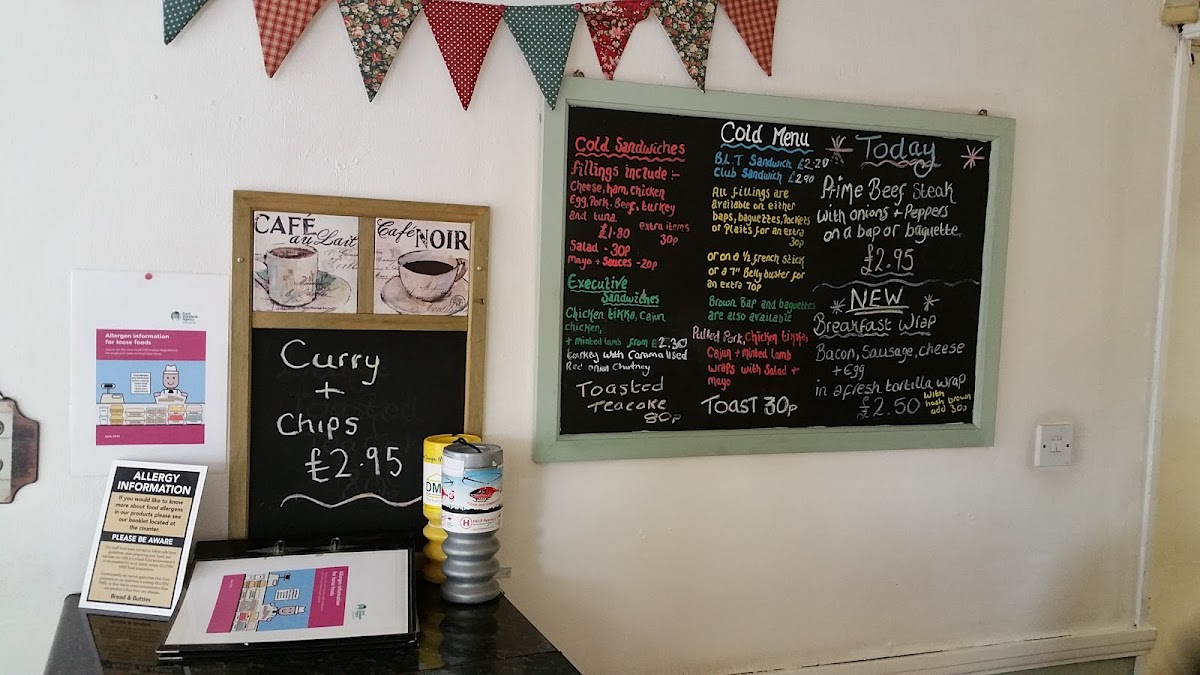 CAFÉ
au Lait
Café
NOIR
Curry
+
Chips
£2.95
Food
Standards
Agency
Allergen information
for loose foods
ALLERGY
INFORMATION
If you would like to know
more about food allergens
in our products please see
our booklet located at
the counter.
PLEASE BE AWARE
Bread & Butties
Allergen information
for loose foods
Cold Sandwiches
fillings include :-
Cheese, ham, chicken
Egg, Pork, Beef, turkey
and tuna
£1.80
extra items
30p
Salad - 30p
Mayo + Sauces - 20p
Executive
Sandwiches
Chicken tikka, Cajun
chicken,
+ minted lamb from £2.30
turkey with Caramalised
Red onion Chutney
Toasted
Teacake
80p
Cold Menu
B.L.T Sandwich £2.20
Club Sandwich £2.90
All fillings are
available on either
baps, baguettes, Pockets
or Plaits for an extra
30p
or on a ½ french stick
or a 7" Belly buster for
an extra 70p
Brown Bap and baguettes
are also available
Pulled Pork, Chicken tikka,
Cajun + minted lamb
wraps with Salad +
mayo
Toast 30p
Today
Prime Beef Steak
with onions + Peppers
on a bap or baguette
£2.95
NEW
Breakfast Wrap
Bacon, Sausage, cheese
+ Egg
in a fresh tortilla wrap
£2.50
With
hash brown
add 30p